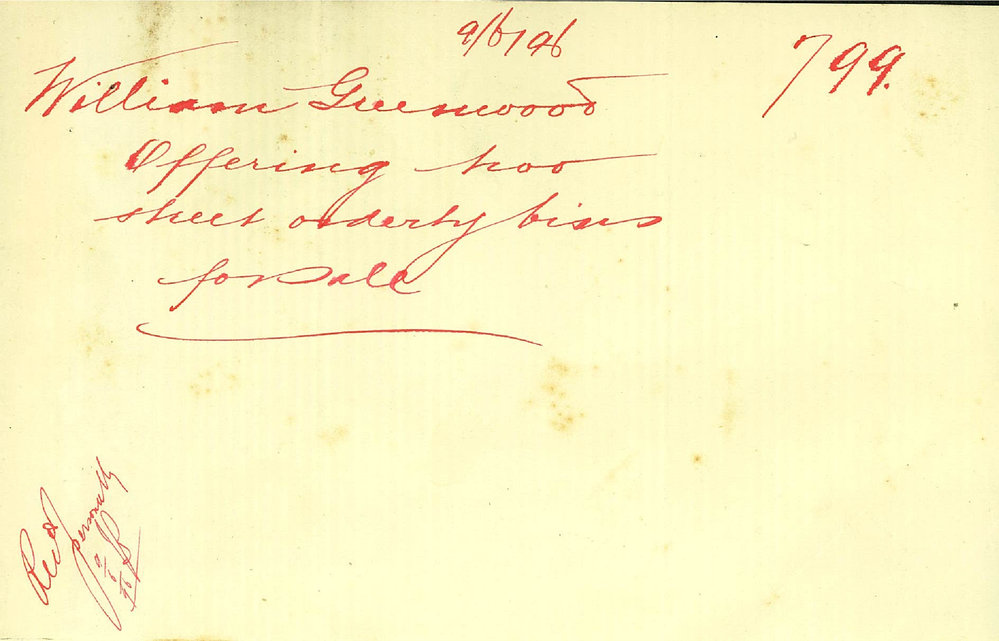 9/6/96
799.
William Greenwood
Offering two
street orderly bins
for Sale
Recd personally
9/6/96